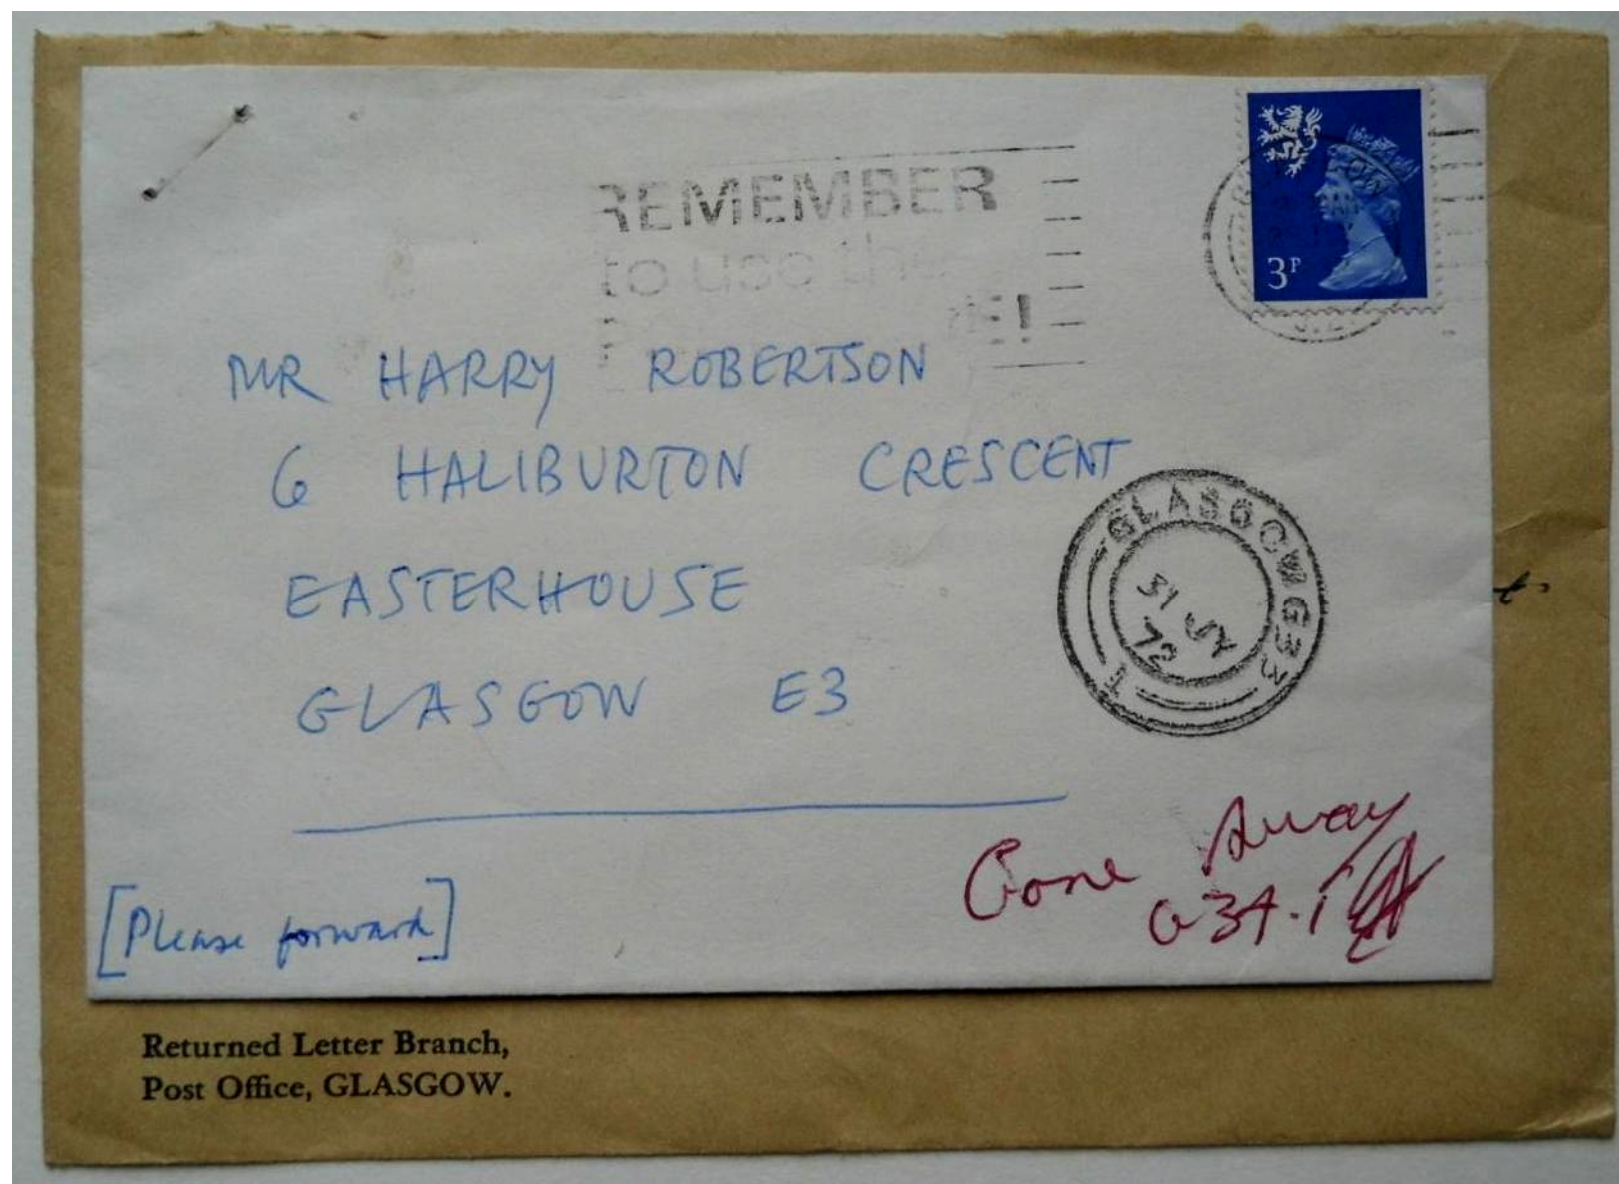 REMEMBER
to use the
E!
3P
MR HARRY ROBERTSON
6 HALIBURTON CRESCENT
EASTERHOUSE
GLASGOW E3
GLASGOW G33
31 JY
72
T
Gone Away
G34.
[Please forward]
Returned Letter Branch,
Post Office, GLASGOW.